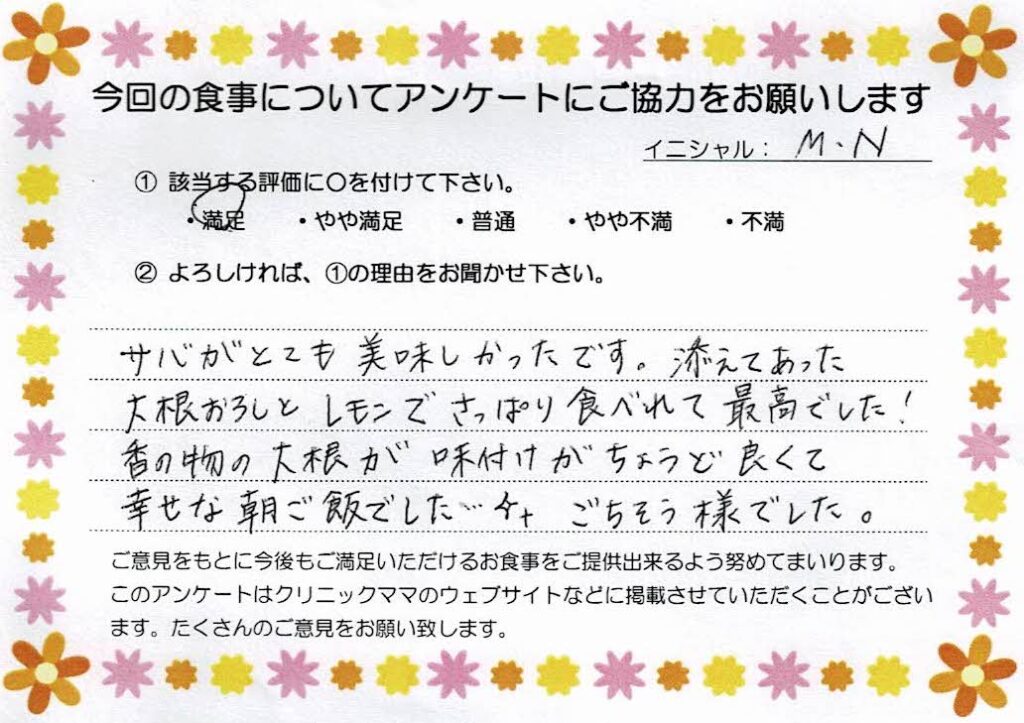 今回の食事についてアンケートにご協力をお願いします
イニシャル： M・N
① 該当する評価に〇を付けて下さい。
・満足 ・やや満足 ・普通 ・やや不満 ・不満
② よろしければ、①の理由をお聞かせ下さい。
サバがとても美味しかったです。添えてあった
大根おろしとレモンでさっぱり食べれて最高でした！
香の物の大根が味付けがちょうど良くて
幸せな朝ご飯でした… ごちそう様でした。
ご意見をもとに今後もご満足いただけるお食事をご提供出来るよう努めてまいります。
このアンケートはクリニックママのウェブサイトなどに掲載させていただくことがござい
ます。たくさんのご意見をお願い致します。